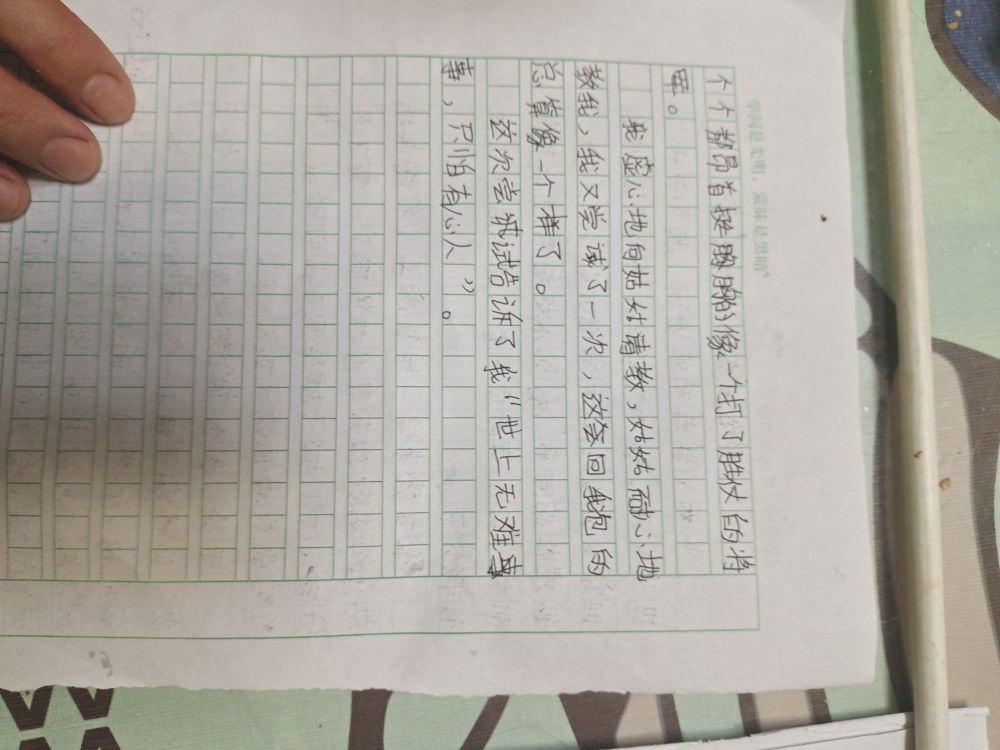 学问是光明,蒙昧是黑暗
个个都昂首挺胸的像一个打了胜仗的将
军。
我虚心地向姑姑请教,姑姑耐心地
教我,我又尝试了一次,这会回我包的
总算像一个样了。
这次尝试试告诉了我“世上无难事
事,只怕有心人”。